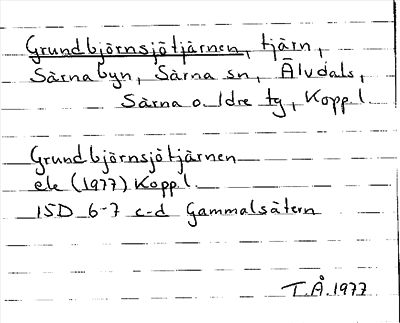 Grundbjörnsjötjärnen, tjärn,
Särnabyn, Särna sn, Älvdals,
Särna o. Idre tg, Koppl.
Grundbjörnsjötjärnen
ek (1977) Koppl.
15D 6-7 c-d Gammalsätern
T.Å. 1977